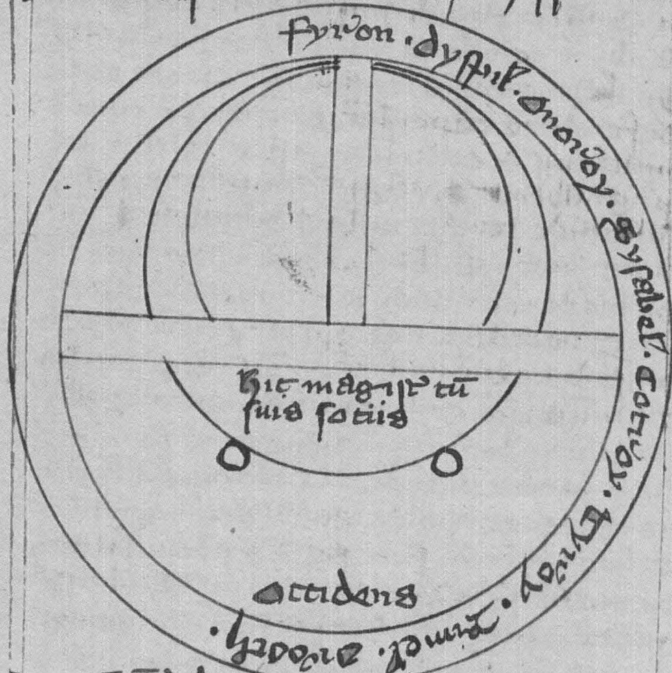 fyron · dyspil · onoroy · sysabel · cotroy · tyroy · rimel · orooth ·
hic magistr cū
suis sotiis
occidens